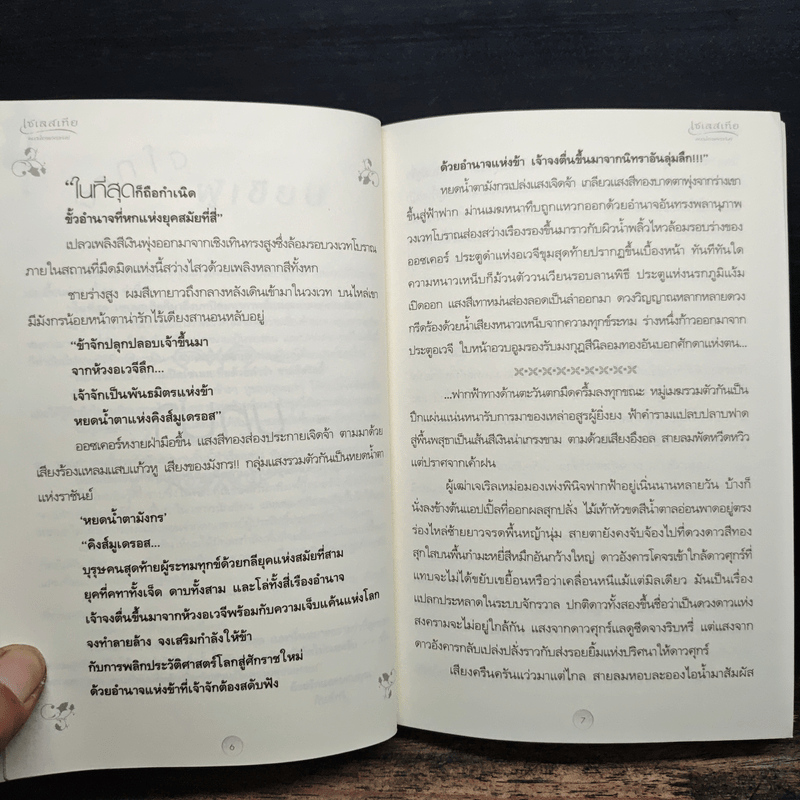 เซเลสเทีย
"ในที่สุดก็ถือกำเนิด
ขั้วอำนาจที่หกแห่งยุคสมัยที่สี่"
เปลวเพลิงสีเงินพุ่งออกมาจากเชิงเทินทรงสูงซึ่งล้อมรอบวงเวทโบราณ
ภายในสถานที่มืดมิดแห่งนี้สว่างไสวด้วยเพลิงหลากสีทั้งหก
ชายร่างสูง ผมสีเทายาวถึงกลางหลังเดินเข้ามาในวงเวท บนไหล่เขา
มีมังกรน้อยหน้าตาน่ารักไร้เดียงสานอนหลับอยู่
"ข้าจักปลุกปลอบเจ้าขึ้นมา
จากห้วงอเวจีลึก...
เจ้าจักเป็นพันธมิตรแห่งข้า
หยดน้ำตาแห่งคิงส์มูเดรอส"
ออซเคอร์หงายฝ่ามือขึ้น แสงสีทองส่องประกายเจิดจ้า ตามมาด้วย
เสียงร้องแหลมแสบแก้วหู เสียงของมังกร!! กลุ่มแสงรวมตัวกันเป็นหยดน้ำตา
แห่งราชันย์
'หยดน้ำตามังกร'
"คิงส์มูเดรอส...
บุรุษคนสุดท้ายผู้ระทมทุกข์ด้วยกลียุคแห่งสมัยที่สาม
ยุคที่คทาทั้งเจ็ด ดาบทั้งสาม และโล่ทั้งสี่เรืองอำนาจ
เจ้าจงตื่นขึ้นมาจากห้วงอเวจีพร้อมกับความเจ็บแค้นแห่งโลก
จงทำลายล้าง จงเสริมกำลังให้ข้า
กับการพลิกประวัติศาสตร์โลกสู่ศักราชใหม่
ด้วยอำนาจแห่งข้าที่เจ้าจักต้องสดับฟัง
6
เซเลสเทีย
ด้วยอำนาจแห่งข้า เจ้าจงตื่นขึ้นมาจากนิทราอันลุ่มลึก!!!"
หยดน้ำตามังกรเปล่งแสงเจิดจ้า เกลียวแสงสีทองบาดตาพุ่งจากร่างเขา
ขึ้นสู่ฟ้าฟาก ม่านเมฆหนาทึบถูกแหวกออกด้วยอำนาจอันทรงพลานุภาพ
วงเวทโบราณส่องสว่างเรืองรองขึ้นมาราวกับผิวน้ำพลิ้วไหวล้อมรอบร่างของ
ออซเคอร์ ประตูดำแห่งอเวจีขุมสุดท้ายปรากฏขึ้นเบื้องหน้า ทันทีทันใด
ความหนาวเหน็บก็ม้วนตัววนเวียนรอบลานพิธี ประตูแห่งนรกภูมิแง้ม
เปิดออก แสงสีเทาหม่นส่องลอดเป็นลำออกมา ดวงวิญญาณหลากหลายดวง
กรีดร้องด้วยน้ำเสียงหนาวเหน็บจากความทุกข์ระทม ร่างหนึ่งก้าวออกมาจาก
ประตูอเวจี ใบหน้าอวบอูมรองรับมงกุฎสีนิลอมทองอันบอกศักดาแห่งตน...
...ฟากฟ้าทางด้านตะวันตกมืดครึ้มลงทุกขณะ หมู่เมฆรวมตัวกันเป็น
ปึกแผ่นแน่นหนารับการมาของเหล่าอสูรผู้ยิ่งยง ฟ้าคำรามแปลบปลาบฟาด
สู่พื้นพสุธาเป็นเส้นสีเงินน่าเกรงขาม ตามด้วยเสียงอึงอล สายลมพัดหวีดหวิว
แต่ปราศจากเค้าฝน
ผู้เฒ่าเจเริลเหม่อมองเพ่งพินิจฟากฟ้าอยู่เนิ่นนานหลายวัน บ้างก็
นั่งลงข้างต้นแอปเปิ้ลที่ออกผลสุกปลั่ง ไม้เท้าหัวขดสีน้ำตาลอ่อนพาดอยู่ตรง
ร่องไหล่ซ้ายยาวจรดพื้นหญ้านุ่ม สายตายังคงจับจ้องไปที่ดวงดาวสีทอง
สุกใสบนพื้นกำมะหยี่สีหมึกอันกว้างใหญ่ ดาวอังคารโคจรเข้าใกล้ดาวศุกร์ที่
แทบจะไม่ได้ขยับเขยื้อนหรือว่าเคลื่อนหนีแม้แต่มิลเดียว มันเป็นเรื่อง
แปลกประหลาดในระบบจักรวาล ปกติดาวทั้งสองขึ้นชื่อว่าเป็นดวงดาวแห่ง
สงครามจะไม่อยู่ใกล้กัน แสงจากดาวศุกร์แลดูซีดจางริบหรี่ แต่แสงจาก
ดาวอังคารกลับเปล่งปลั่งราวกับส่งรอยยิ้มแห่งปริศนาให้ดาวศุกร์
เสียงครืนครันแว่วมาแต่ไกล สายลมหอบละอองไอน้ำมาสัมผัส
7